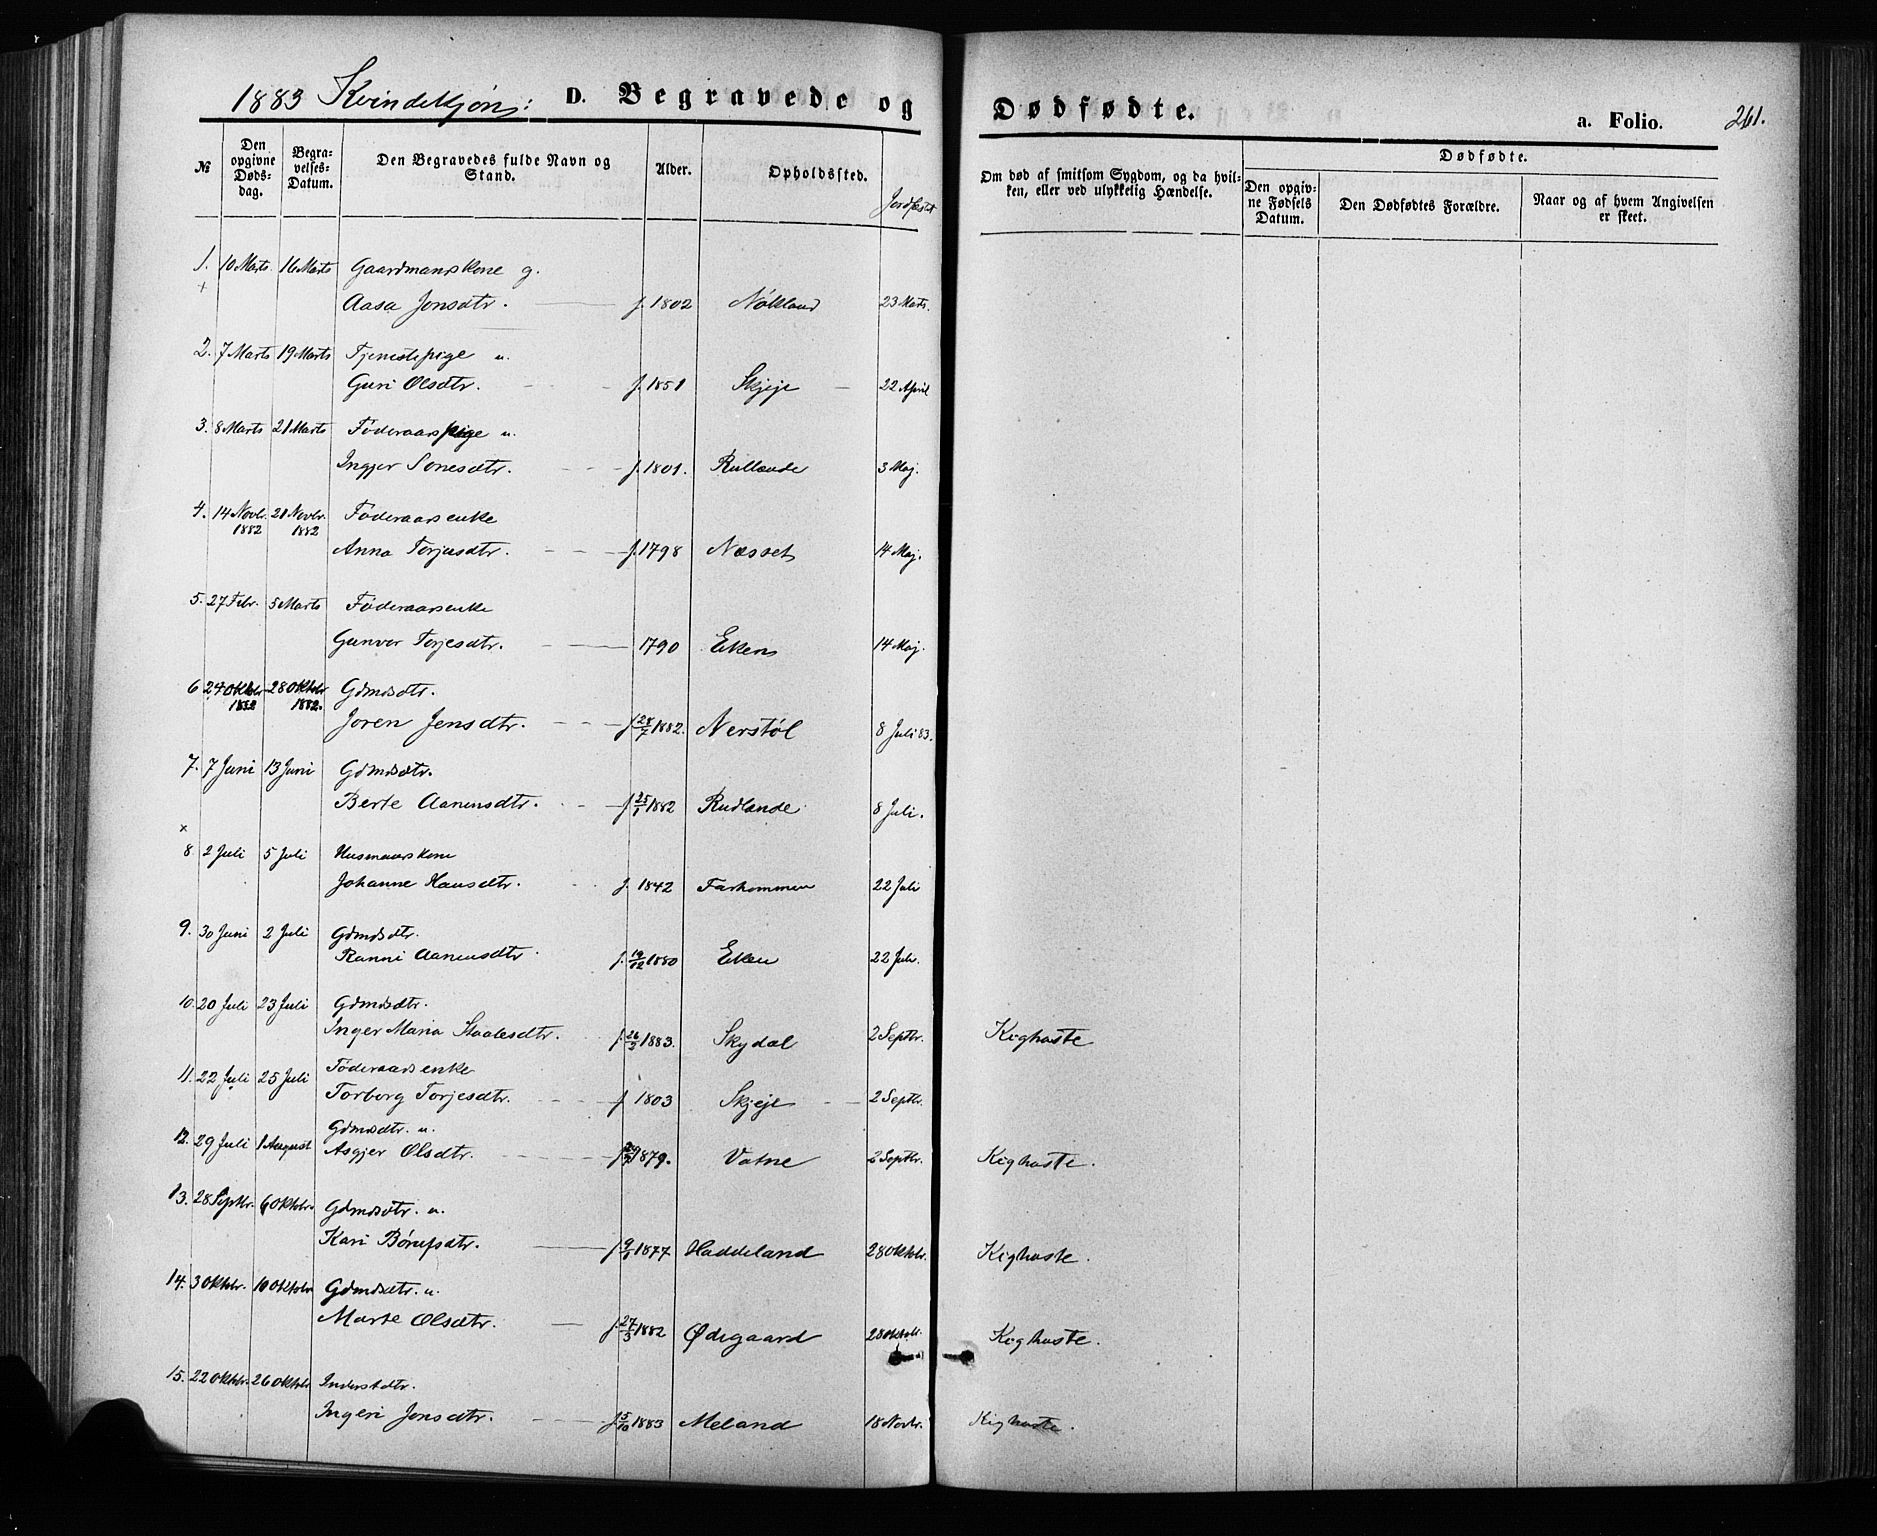 1883 Kvindekjøn: D. Begravede og Dødfødte. a. Folio. 261.
№ Den opgivne Døds-dag. Begra-velses-Datum. Den Begravedes fulde Navn og Stand. Alder. Opholdssted. Jordfæstet Om død af smitsom Sygdom, og da hvil-ken, eller ved ulykkelig Hændelse. Dødfødte. Den opgiv-ne Fødsels Datum. Den Dødfødtes Forældre. Naar og af hvem Angivelsen er skeet.
1. 10 Marts 16 Marts Gaardmanskone g.
+ Aasa Jonsdtr. f. 1802 Nökland 23 Marts.
2. 7 Marts 19 Marts Tjenestepige u.
Guri Olsdtr. f. 1851 Skjeje 22 April
3. 8 Marts 21 Marts Føderaarspige u.
Ingjer Sonesdtr. f. 1801. Rullande 3 Maj.
4. 14 Novbr. 1882 21 Novbr. 1882 Föderaarsenke
Anna Torjusdtr. f. 1798 Næsset 14 Maj.
5. 27 Febr. 5 Marts Föderaarsenke
Gunvor Torjesdtr. 1790 Eken 14 Maj.
6 24 Oktobr 1882 28 Oktobr 1882. Gdmdsdtr.
Joren Jensdtr. f. 28/7 1882. Nerstøl 8 Juli 83.
7. 7 Juni 13 Juni Gdmdsdtr.
Berte Aanensdtr. f. 25/1 1882 Rudlande 8 Juli.
×
8. 2 Juli 5 Juli Husmanskone
Johanne Hansdtr. f. 1842 Farkommen 22 Juli
9. 30 Juni 2 Juli Gdmdsdtr.
Ranni Aanensdtr. f. 19/12 1880 Eken 22 Juli.
10. 20 Juli 23 Juli Gdmdsdtr.
Inger Maria Staalesdtr. f. 26/2 1883. Skydal 2 Septbr. Kighoste
11. 22 Juli 25 Juli Föderaarsenke
Torborg Torjesdtr. f. 1803 Skjeje 2 Septbr.
12. 29 Juli 1 August Gdmdsdtr. u.
Asgjer Olsdtr. 1879. Vatne 2 Septbr. Kighoste.
13. 28 Septbr. 6 Oktobr. Gdmdsdtr. u.
Kari Børufsdtr. f. 9/1 1877 Haddeland 28 Oktobr. Kighoste.
14. 3 Oktobr. 10 Oktobr Gdmdsdtr. u.
Marte Olsdtr. f. 27/3 1882 Ødegaard 28 Oktobr. Kighoste.
15. 22 Oktobr. 26 Oktobr Inderstdtr.
Ingeri Jonsdtr. f. 5/10 1883 Meland 18 Novbr. Kighoste.